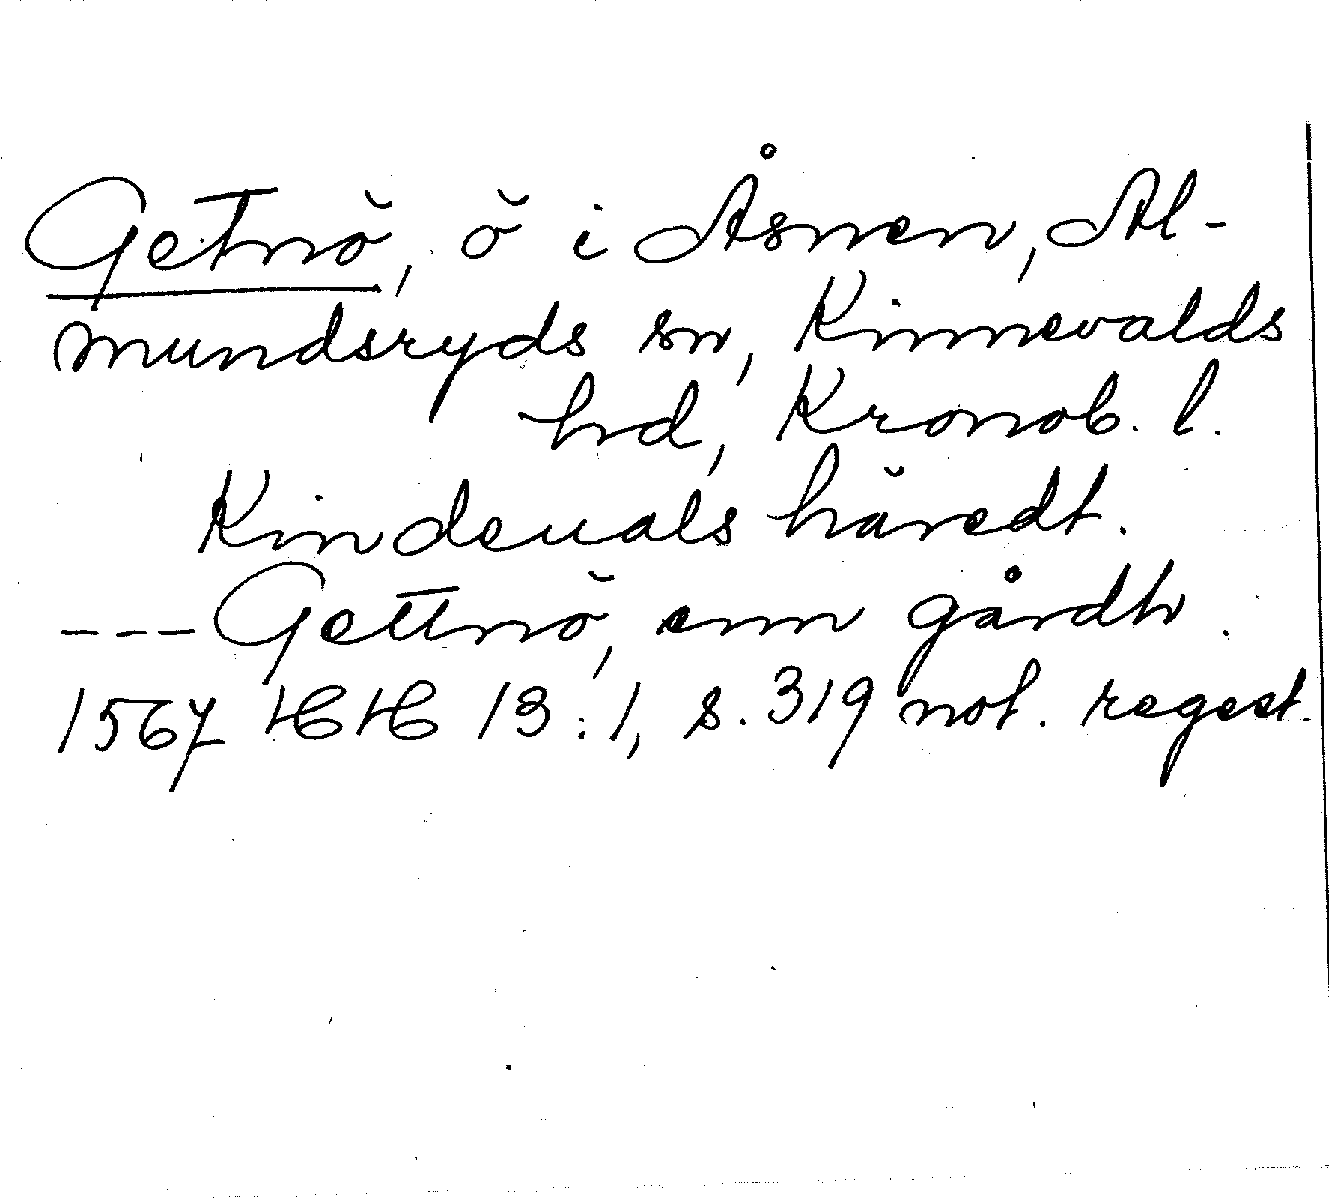 Getnö, ö i Åsnen, Al-
mundsryds sn, Kinnevalds
hrd, Kronob. l.
Kindeuals häredt.
--- Gettnö, enn gårdh.
1567 HH 13:1, s. 319 not. regest.